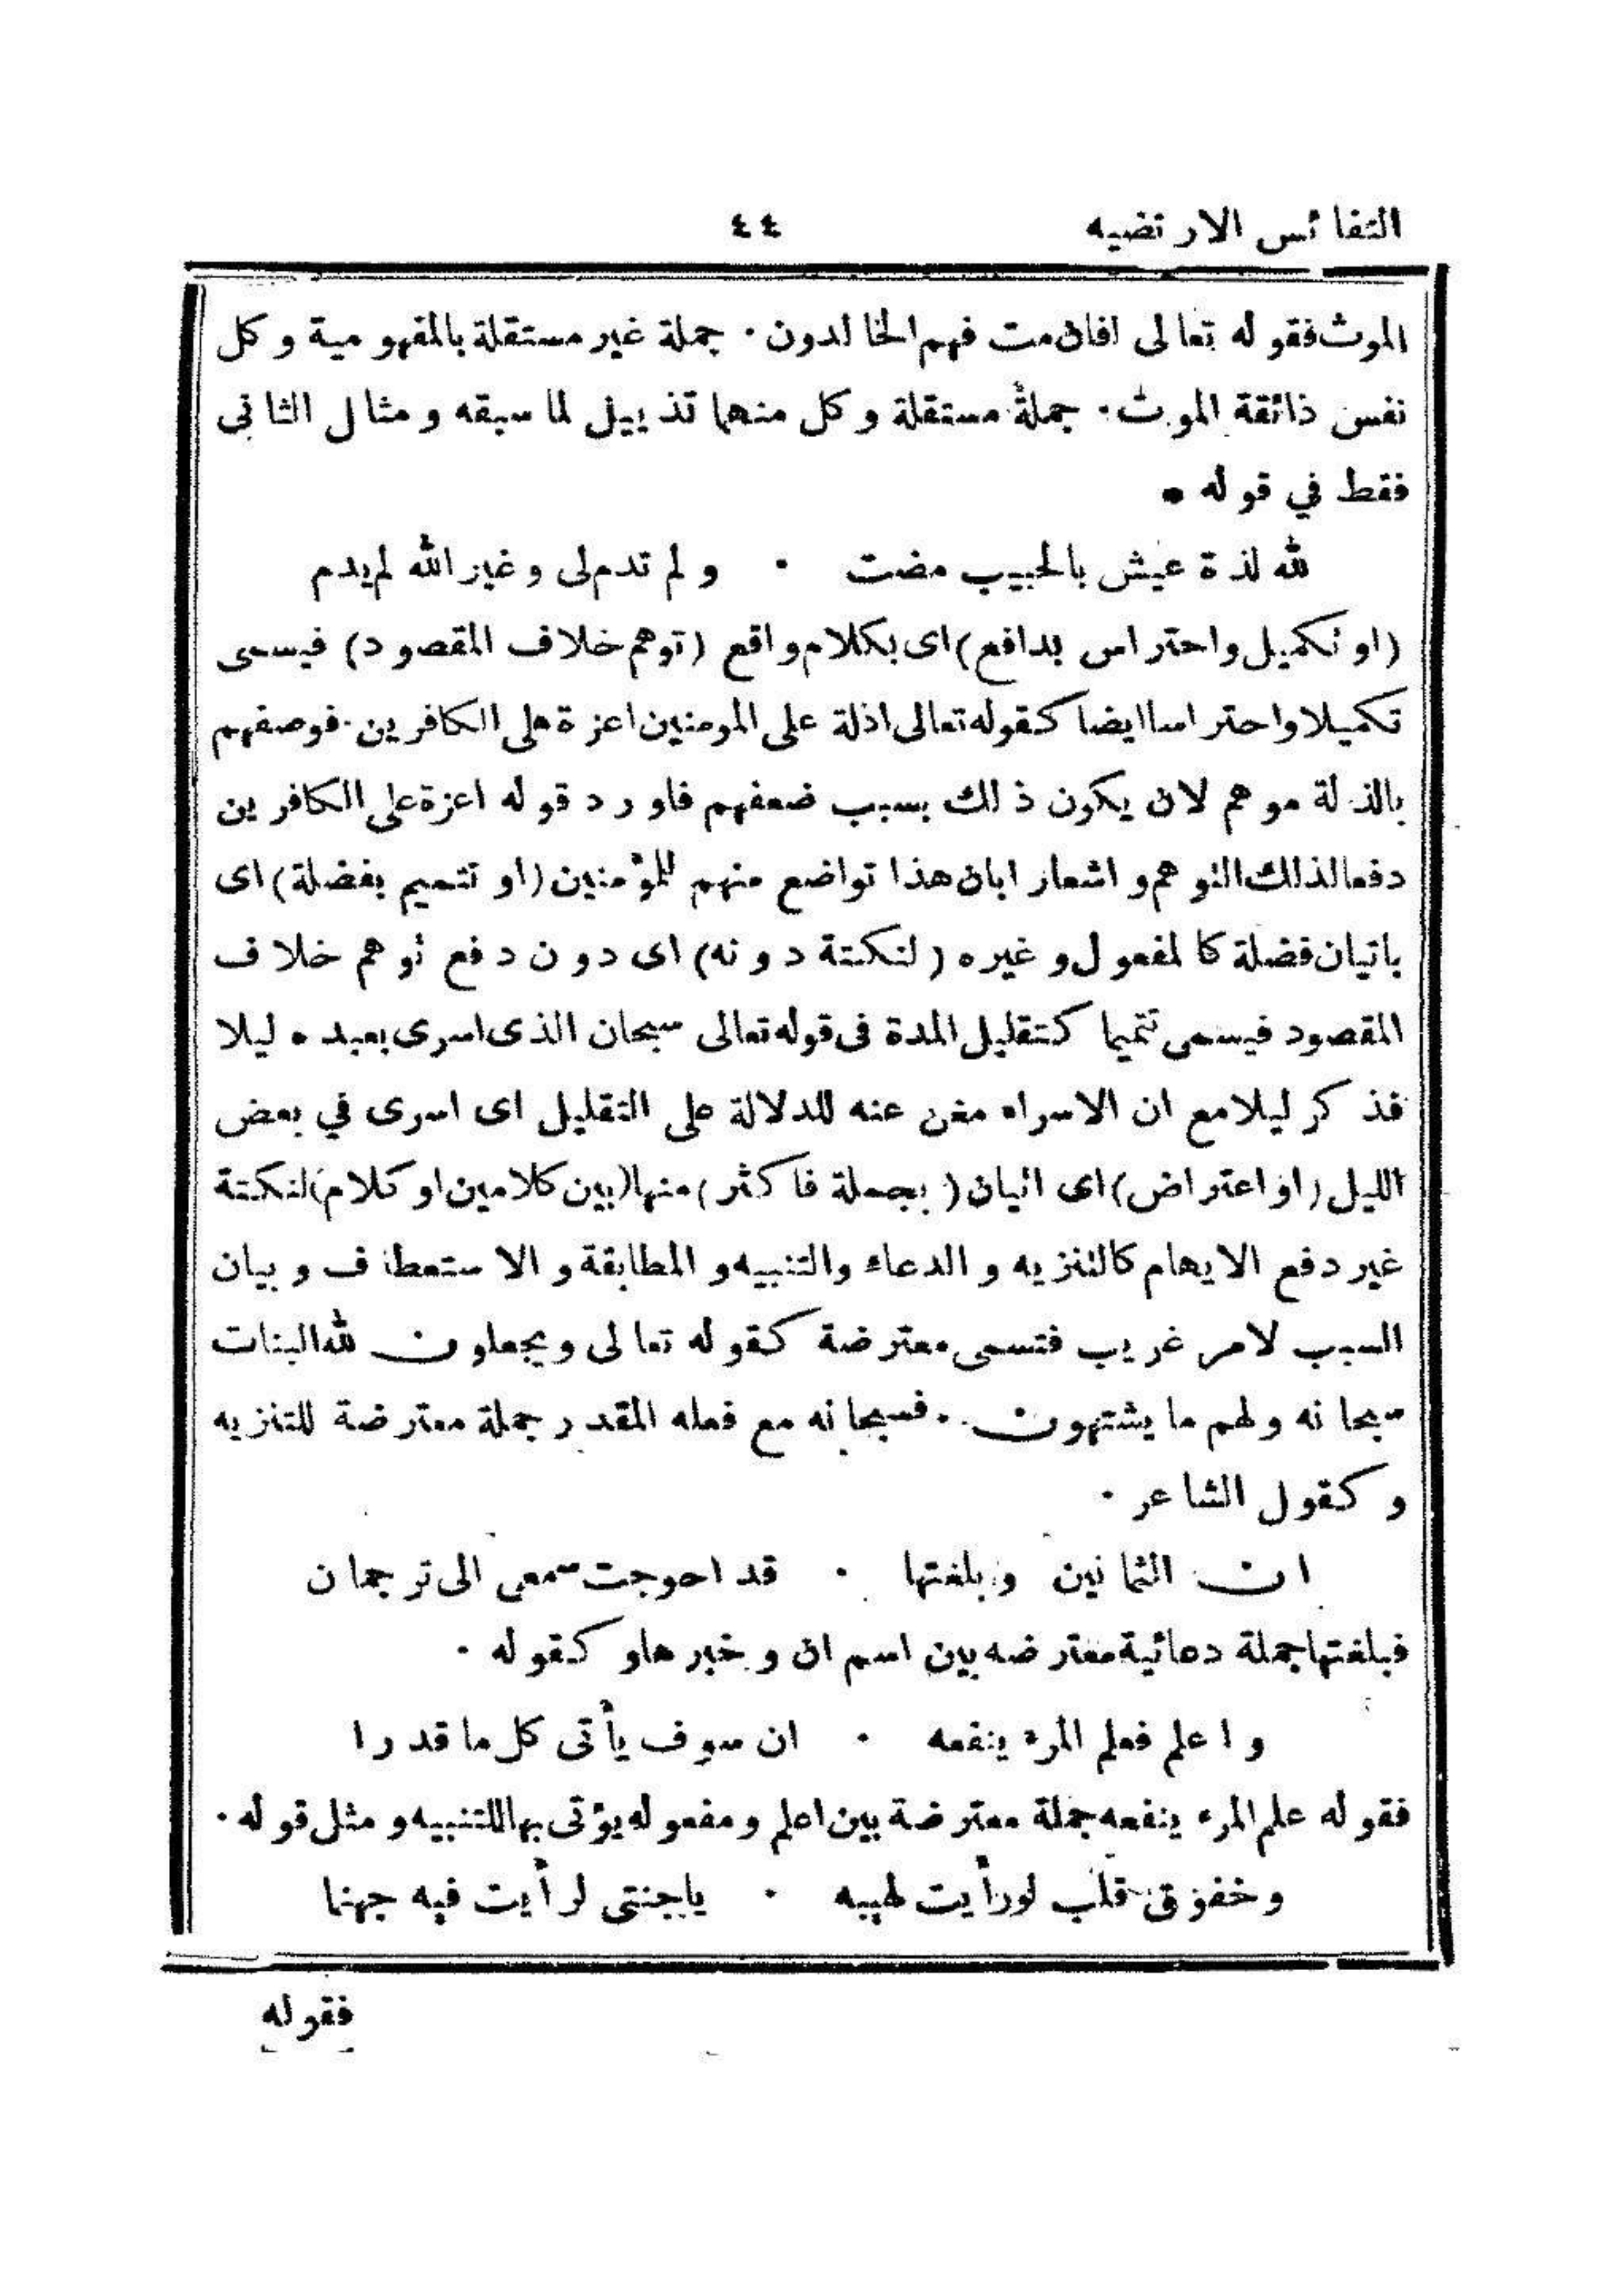 النفائس الارتضيه ٤٤
الموت فقوله تعالى افان مت فهم الخالدون ٠ جملة غير مستقلة بالمفهومية وكل
نفس ذائقة الموت ٠ جملة مستقلة وكل منهما تذييل لما سبقه ومثال الثانى
فقط في قوله ٠
لله لذة عيش بالحبيب مضت ٠ ولم تدم لى وغير الله لم يدم
(او تكميل واحتراس بدافع) اى بكلام واقع (توهم خلاف المقصود) فيسمى
تكميلا واحتراسا ايضا كقوله تعالى اذلة على المومنين اعزة على الكافرين ٠ فوصفهم
بالذلة موهم لان يكون ذلك بسبب ضعفهم فاورد قوله اعزة على الكافرين
دفعا لذلك التوهم واشعارا بان هذا تواضع منهم للمؤمنين (او تتميم بفضلة) اى
باتيان فضلة كالمفعول وغيره (لنكتة دونه) اى دون دفع توهم خلاف
المقصود فيسمى تتميما كتقليل المدة فى قوله تعالى سبحان الذى اسرى بعبده ليلا
فذكر ليلا مع ان الاسراء مغن عنه للدلالة على التقليل اى اسرى في بعض
الليل (او اعتراض) اى اتيان (بجملة فاكثر) منها (بين كلامين او كلام) لنكتة
غير دفع الايهام كالتنزيه والدعاء والتنبيه والمطابقة والاستعطاف وبيان
السبب لامر غريب فتسمى معترضة كقوله تعالى ويجعلون لله البنات
سبحانه ولهم ما يشتهون ٠ فسبحانه مع فعله المقدر جملة معترضة للتنزيه
وكقول الشاعر ٠
ان الثمانين وبلغتها ٠ قد احوجت سمعى الى ترجمان
فبلغتها جملة دعائية معترضه بين اسم ان وخبرها وكقوله ٠
واعلم فعلم المرء ينفعه ٠ ان سوف يأتى كل ما قدرا
فقوله علم المرء ينفعه جملة معترضة بين اعلم ومفعوله يؤتى بها للتنبيه ومثل قوله ٠
وخفوق قلب لورأيت لهيبه ٠ ياجنتى لرأيت فيه جهنما
فقوله